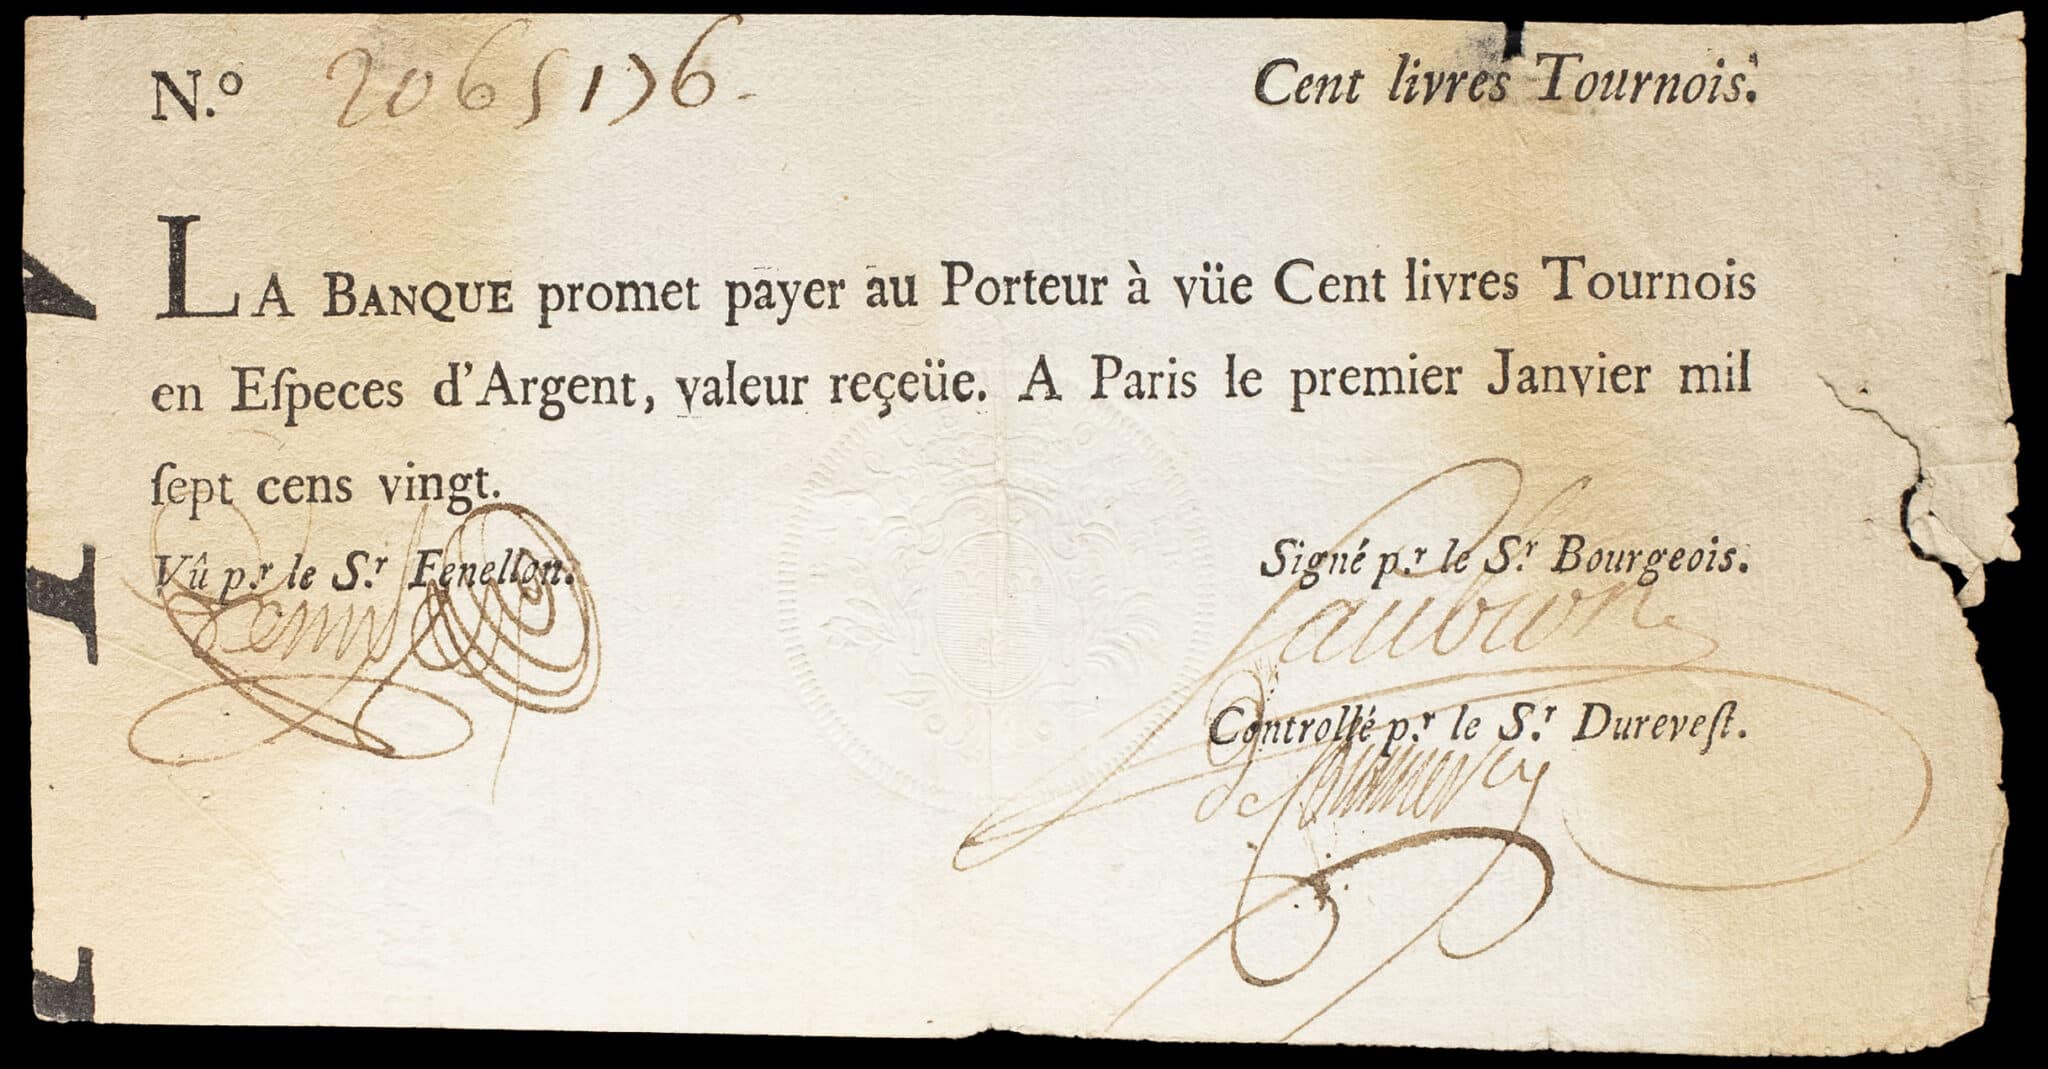 N.º 2065176.
Cent livres Tournois.
LA BANQUE promet payer au Porteur à vüe Cent livres Tournois
en Eſpeces d'Argent, valeur reçeüe. A Paris le premier Janvier mil
ſept cens vingt.
Vû p.r le S.r Fenellon.
Signé p.r le S.r Bourgeois.
Controllé p.r le S.r Dureveſt.